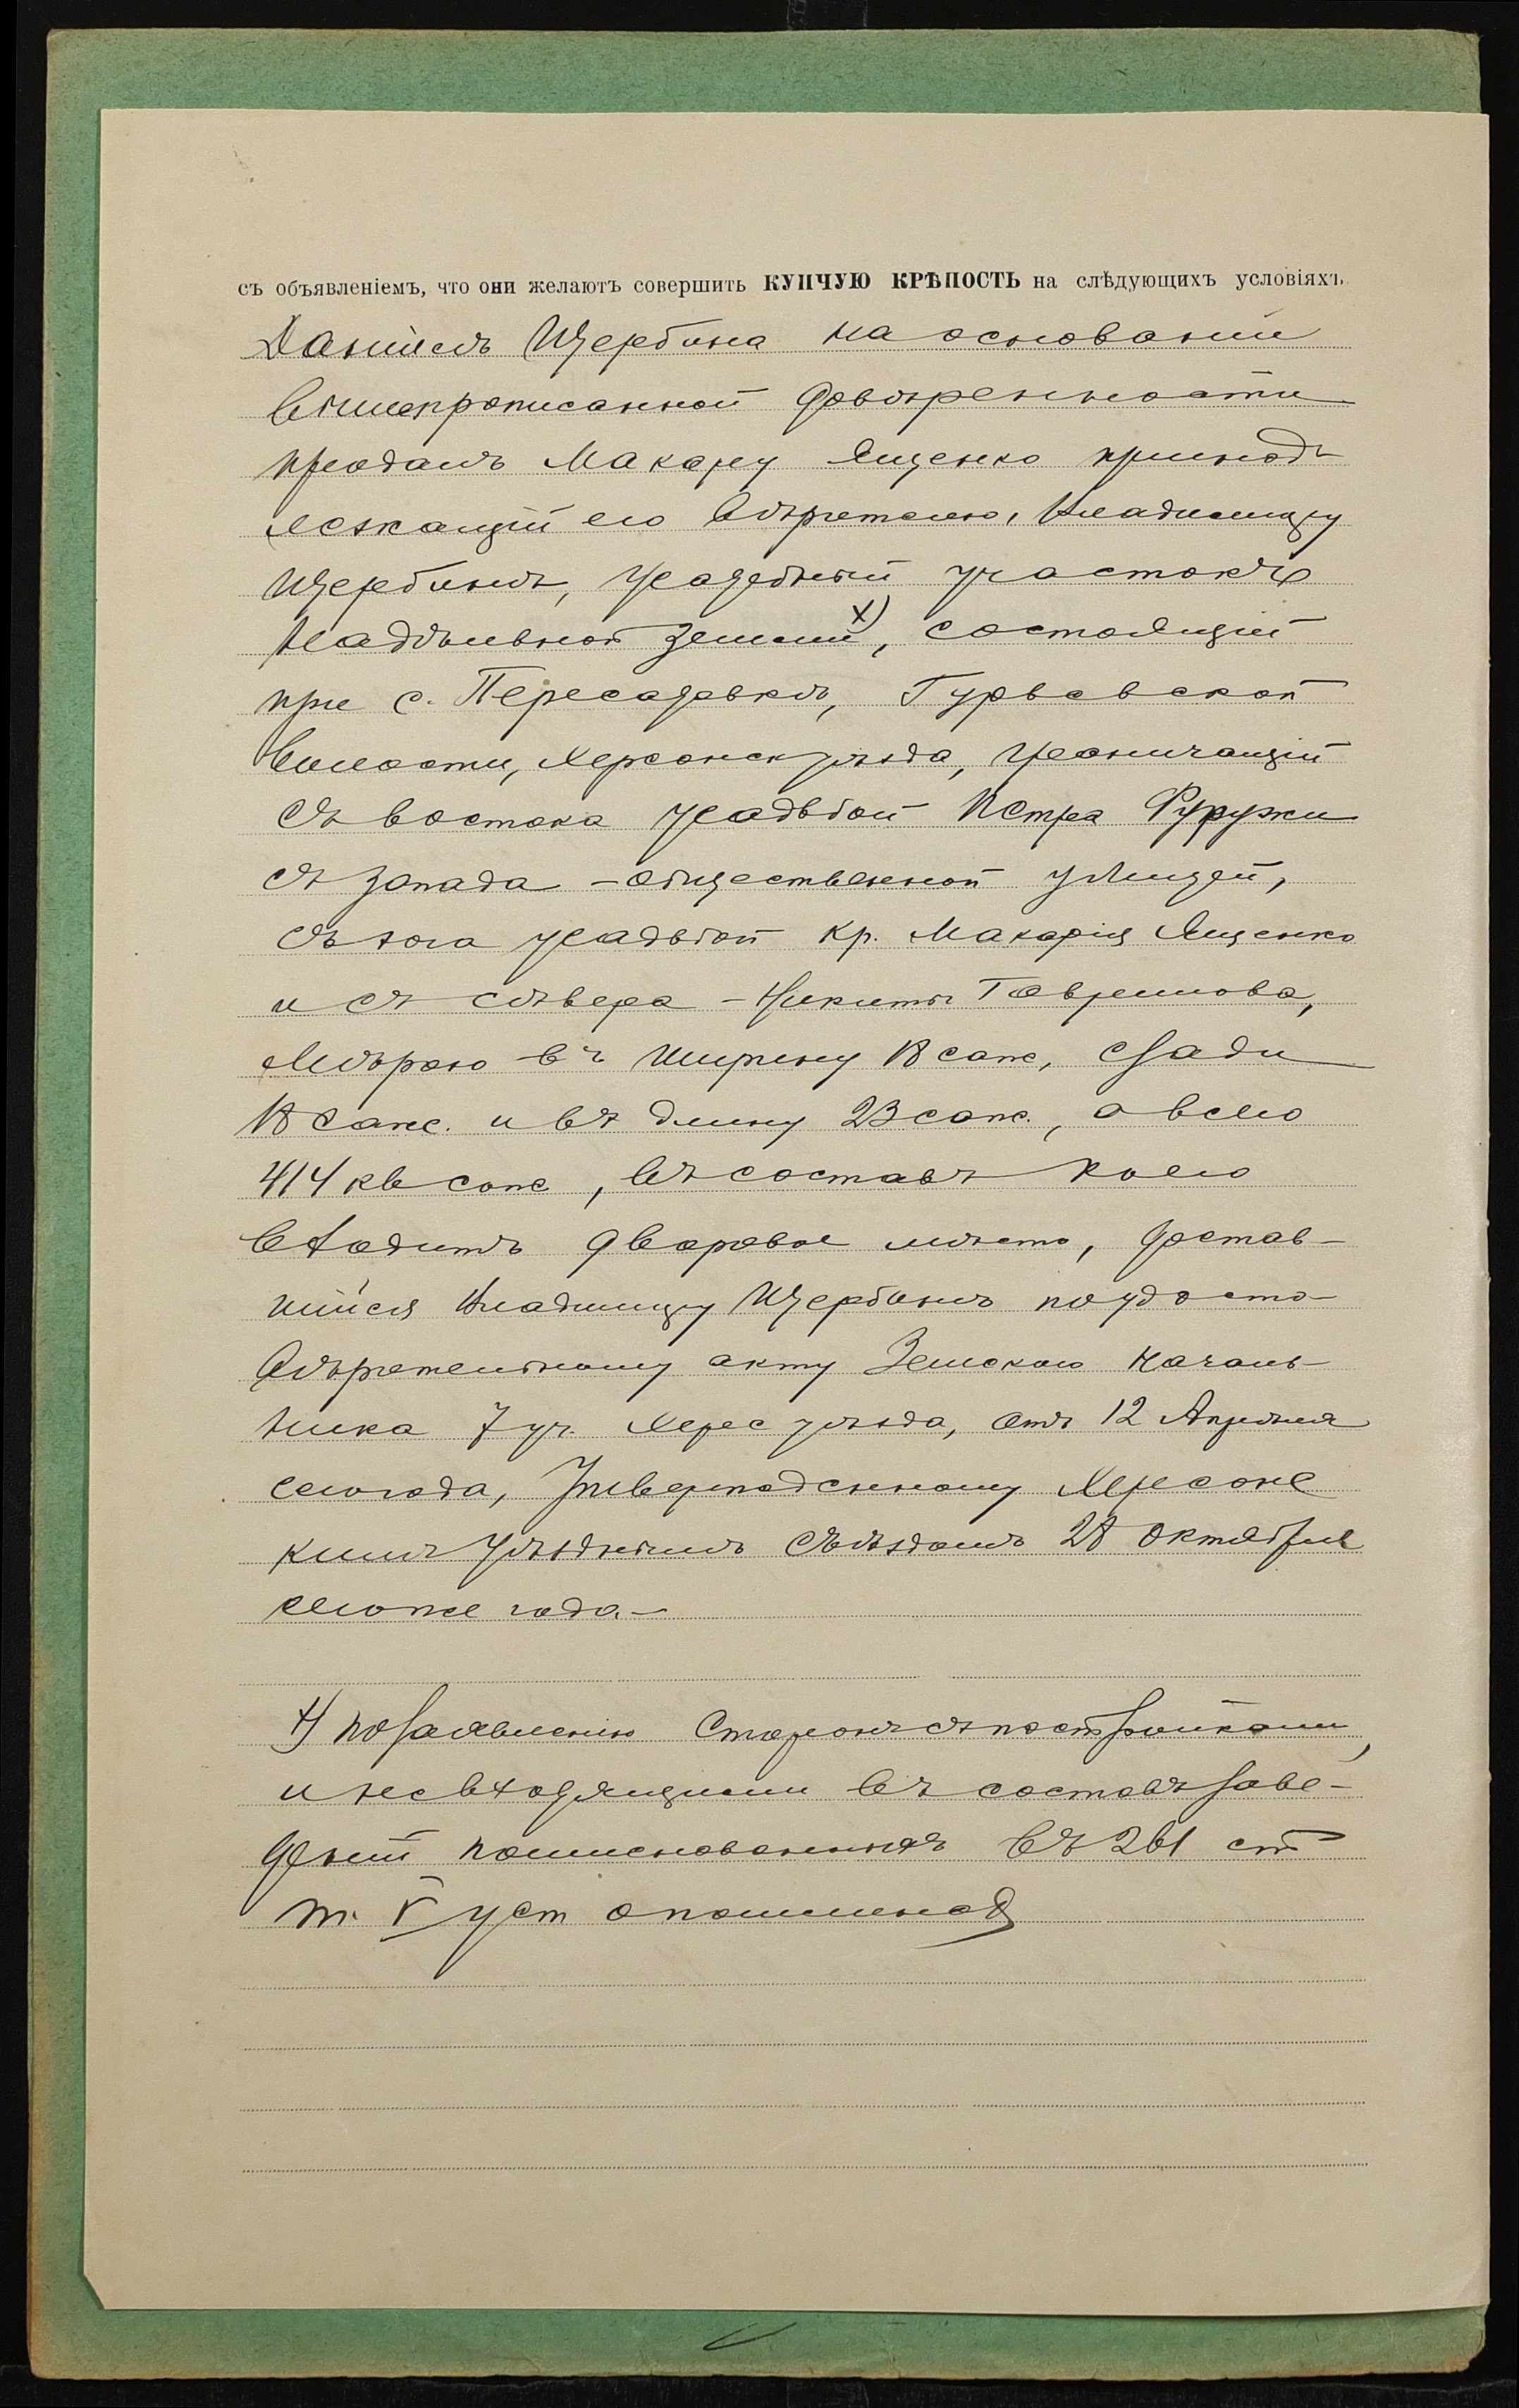 съ объявленіемъ, что они желаютъ совершить КУПЧУЮ КРѢПОСТЬ на слѣдующихъ условіяхъ
Даніилъ Щербина на основаніи
вышепрописанной довѣренности
продалъ Макару Ященко принад-
лежащій его вѣрителю, Владиміру
Щербинѣ, усадебный участокъ
надѣльной земли х), состоящій
при с. Пересадовкѣ, Гурьевской
волости, Херсонск уѣзда, граничащій
съ востока усадьбой Петра Фуружи
съ запада - общественной улицей,
съ юга усадьбой кр. Макарія Ященко
и съ сѣвера - Никиты Гаврилова,
мѣрою въ ширину 18 саж, сзади
18 саж. и въ длину 23 саж., а всего
414 кв саж, въ составъ коего
входитъ дворовое мѣсто, достав-
шійся Владиміру Щербинѣ по удосто-
вѣрительному акту Земскаго Началь-
ника 7 уч. Херс уѣзда, отъ 12 Апрѣля
сего года, утвержденному Херсонс
кимъ Уѣзднымъ Съѣздомъ 28 Октября
сего же года. -
х) по заявленію сторонъ съ постройками,
и не входящими въ составъ заве-
деній поименованныхъ въ 261 ст
т. V уст о пошлинахъ